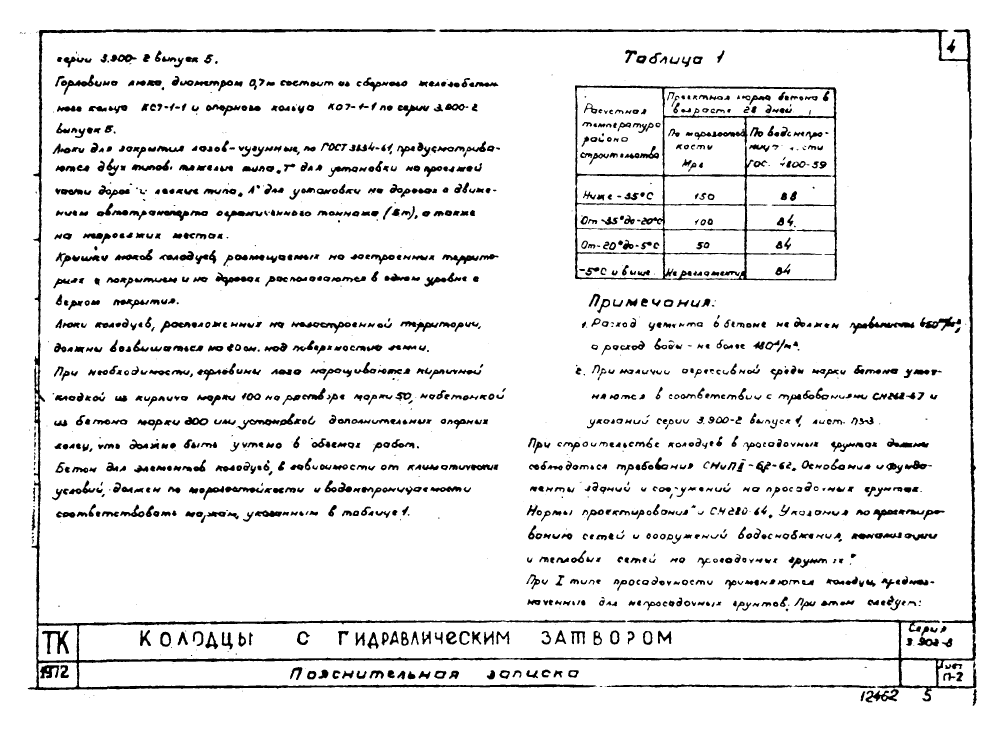 4
серии 3.900-2 выпуск 5.
Горловина люка, диаметром 0,7м состоит из сборного железобетон-
ного кольца КС7-1-1 и опорного кольца КО7-1-1 по серии 3.900-2
выпуск 5.
Люки для закрытия лазов-чугунные, по ГОСТ 3634-61, предусматрива-
ются двух типов: тяжелые типа „Т" для установки на проезжей
части дорог и легкие типа „Л" для установки на дорогах с движе-
нием автотранспорта ограниченного тоннажа (5т), а также
на непроезжих местах.
Крышки люков колодцев, размещаемых на застроенных террито-
риях с покрытием и на дорогах располагаются в одном уровне с
верхом покрытия.
Люки колодцев, расположенных на незастроенной территории,
должны возвышаться на 20 см. над поверхностью земли.
При необходимости, горловины лаза наращиваются кирпичной
кладкой из кирпича марки 100 на растворе марки 50, набетонкой
из бетона марки 200 или установкой дополнительных опорных
колец, что должно быть учтено в объемах работ.
Бетон для элементов колодцев, в зависимости от климатических
условий, должен по морозостойкости и водонепроницаемости
соответствовать маркам, указанным в таблице 1.
Таблица 1
Расчетная температура района строительства
Проектная марка бетона в возрасте 28 дней
По морозостой кости Мрз
По водонепро- ниц ости ГОСТ 4800-59
Ниже -35°С 150 В8
От -35° до -20°С 100 В4
От -20° до -5°С 50 В4
-5°С и выше Не регламентир В4
Примечания:
1. Расход цемента в бетоне не должен превышать 450 кг/м³,
а расход воды - не более 180 л/м³.
2. При наличии агрессивной среды марки бетона уточ-
няются в соответствии с требованиями СН262-67 и
указаний серии 3.900-2 выпуск 1, лист ПЗ-3.
При строительстве колодцев в просадочных грунтах должны
соблюдаться требования СНиП II-Б.2-62 „Основания и фунда-
менты зданий и сооружений на просадочных грунтах.
Нормы проектирования" и СН280-64 „Указания по проектиро-
ванию сетей и сооружений водоснабжения, канализации
и тепловых сетей на просадочных грунтах."
При I типе просадочности применяются колодцы, предназ-
наченные для непросадочных грунтов. При этом следует:
ТК КОЛОДЦЫ С ГИДРАВЛИЧЕСКИМ ЗАТВОРОМ Серия 3.902-8
1972 Пояснительная записка Лист П-2
12462 5